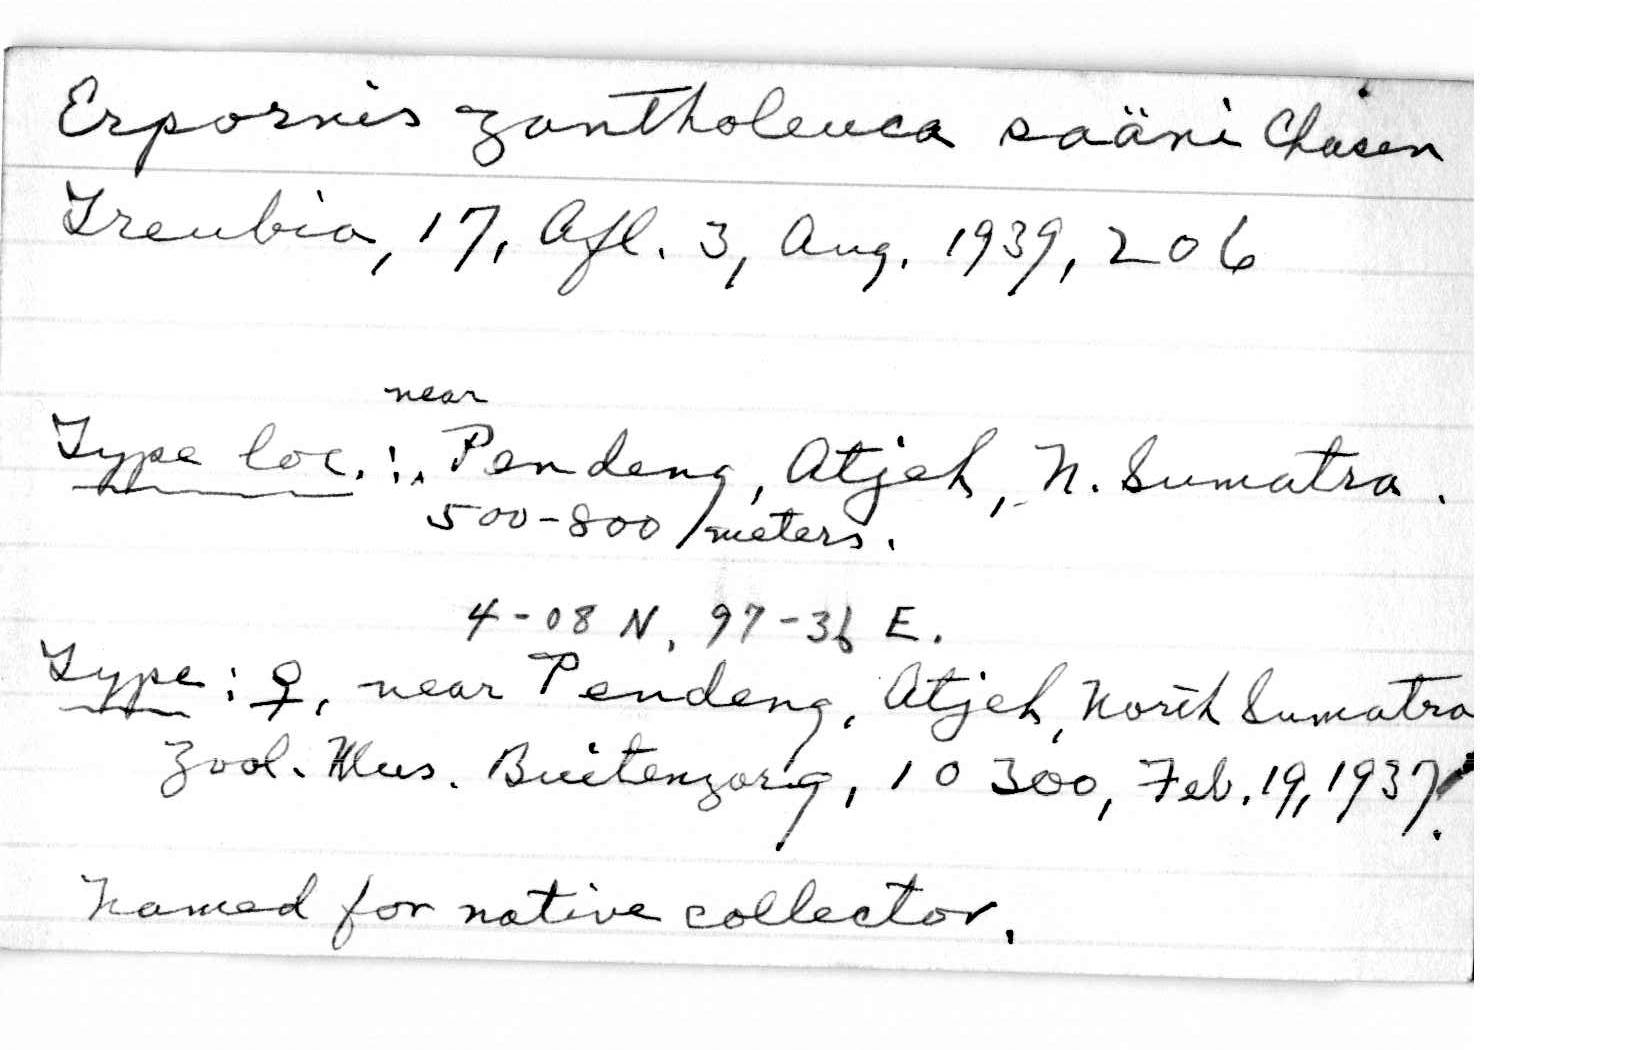 Erpornis zantholeuca saäni Chasen
Treubia, 17, Afl. 3, Aug. 1939, 206
near
Type loc.: Pendeng, Atjeh, N. Sumatra.
500-800 meters.
4-08 N, 97-36 E.
Type: ♀, near Pendeng, Atjeh, North Sumatra
Zool. Mus. Buitenzorg, 10300, Feb. 19, 1937.
Named for native collector.